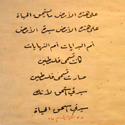 على هذه الأرض ما يستحق الحياة
على هذه الأرض سيدة الأرض
أم البدايات أم النهايات
كانت تسمى فلسطين
صارت تسمى فلسطين
سيدتي أستحق لأنك
سيدتي أستحق الحياة